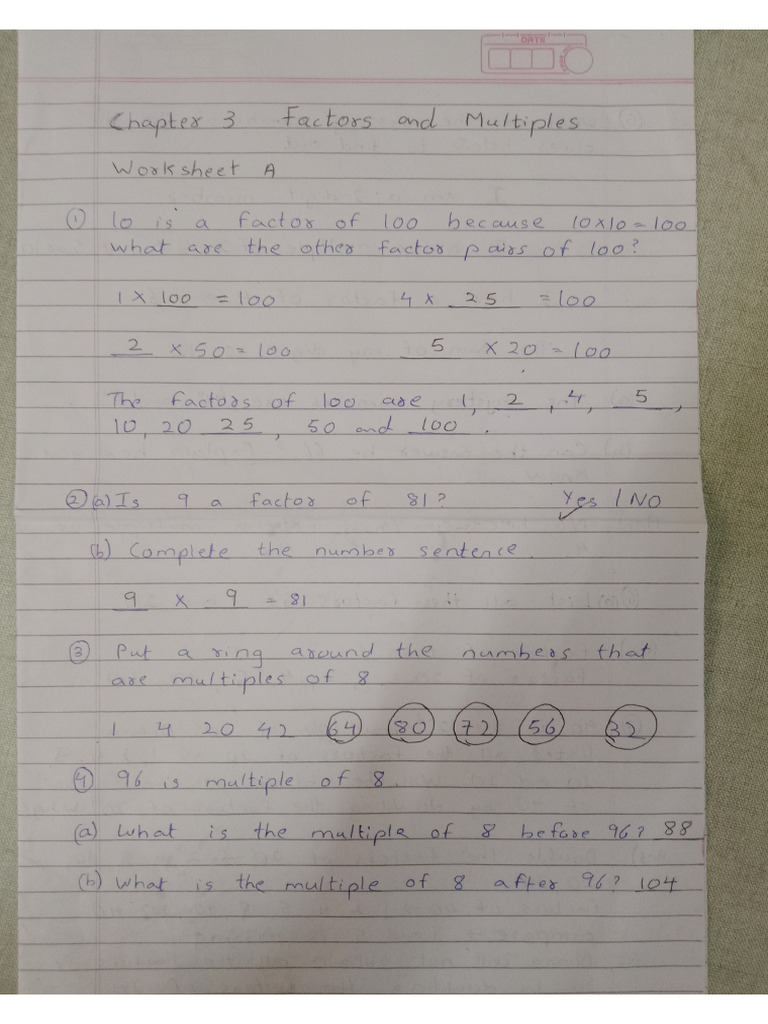 DATE
Chapter 3 Factors and Multiples
Worksheet A
① 10 is a factor of 100 because 10×10=100
what are the other factor pairs of 100?
1 × 100 = 100 4 × 25 = 100
2 × 50 = 100 5 × 20 = 100
The factors of 100 are 1, 2, 4, 5,
10, 20 25, 50 and 100.
② (a) Is 9 a factor of 81? Yes / NO
(b) Complete the number sentence.
9 × 9 = 81
③ Put a ring around the numbers that
are multiples of 8.
1 4 20 42 64 80 72 56 32
④ 96 is multiple of 8.
(a) What is the multiple of 8 before 96? 88
(b) What is the multiple of 8 after 96? 104